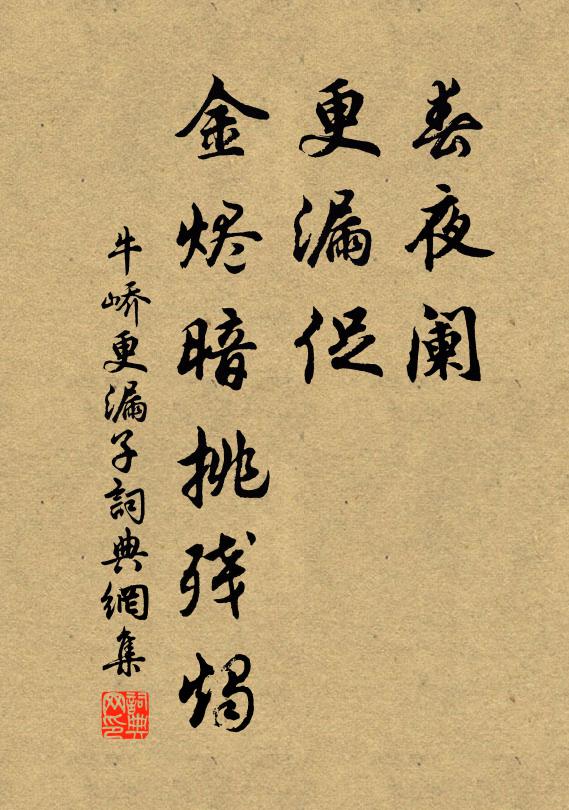 春夜阑
更漏促
金烬暗挑残烛
牛嶠更漏子詞典網集
詞典网印